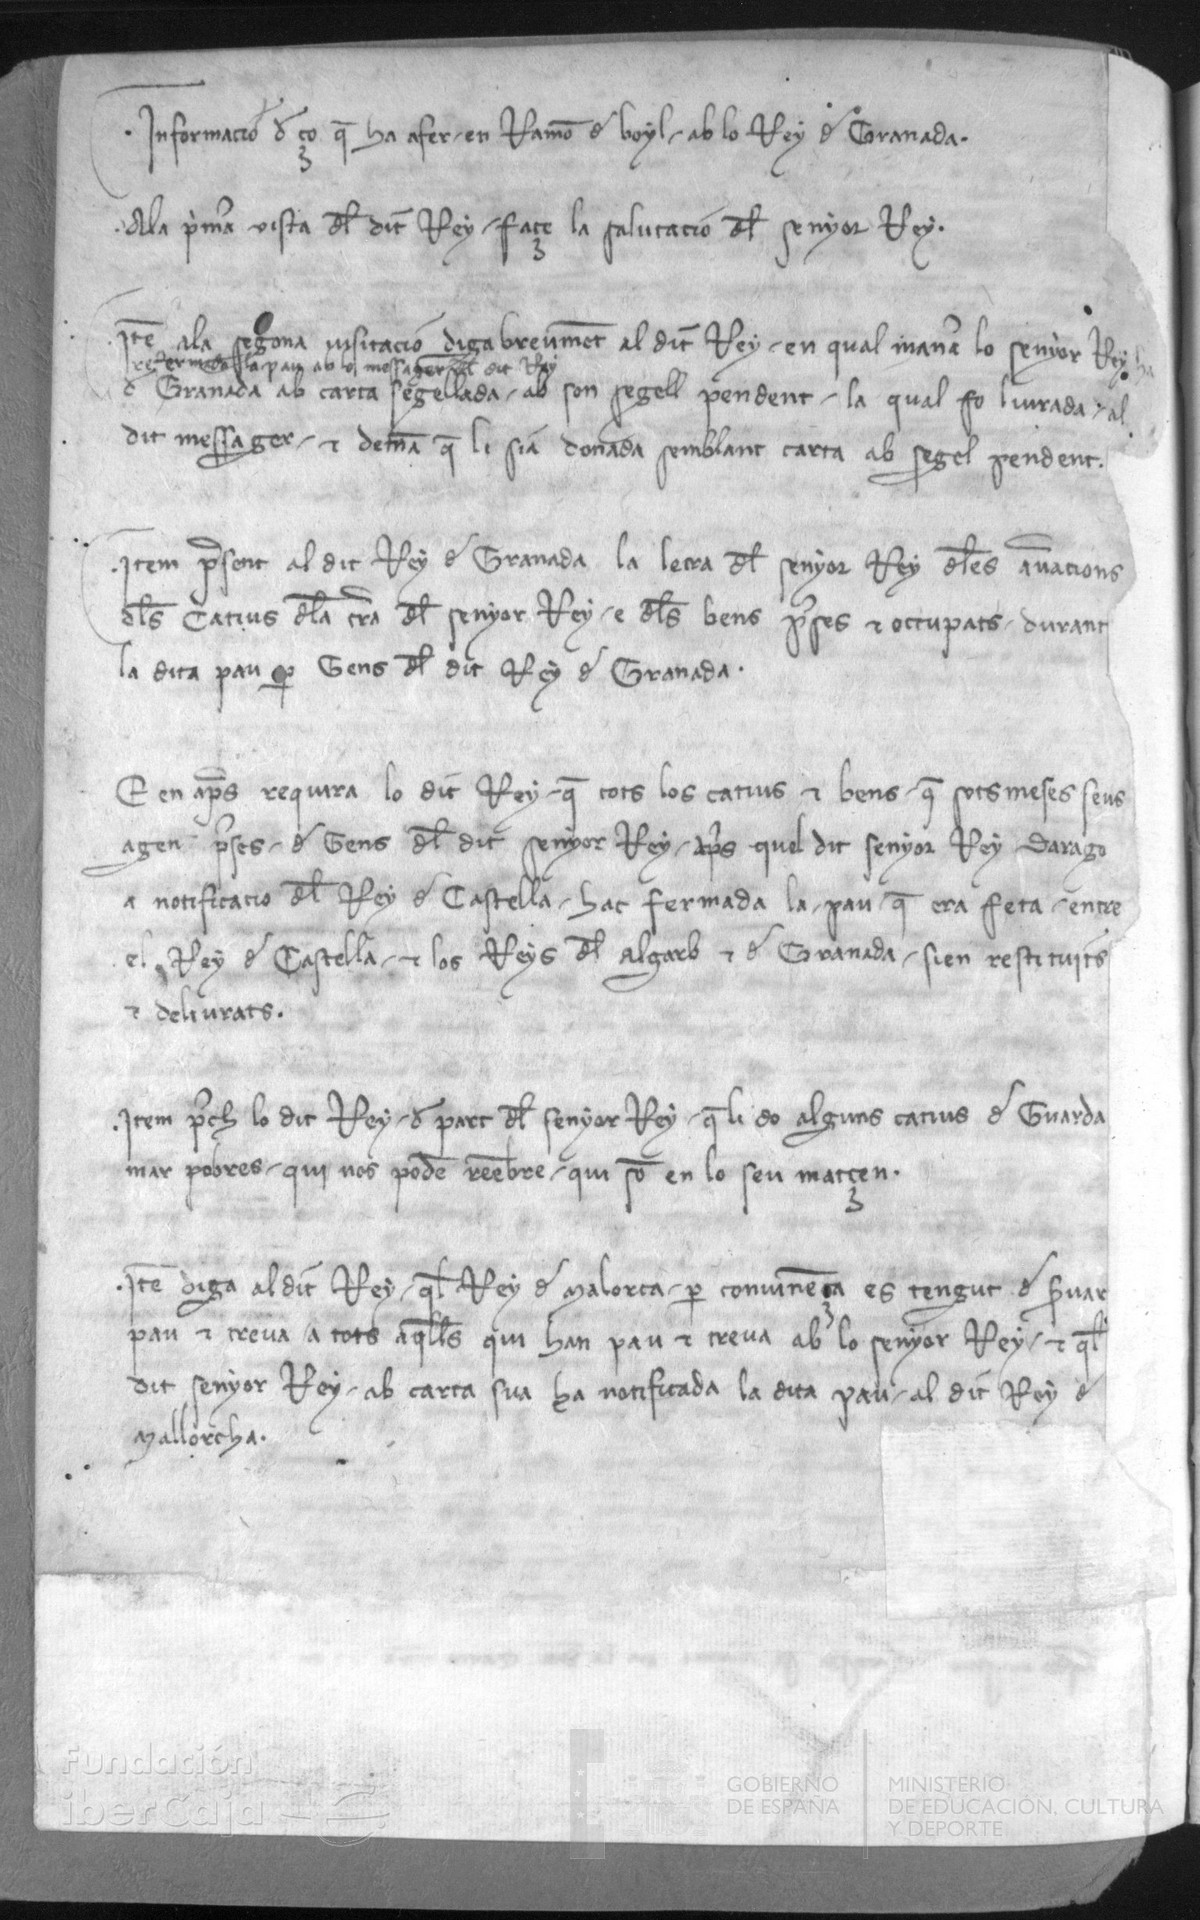 Informacio d ço q̄ ha afer en Ramō d boyl ab lo Rey d Granada.
Ala p̃mͣa vista dl̄ dit Rey face la salutacio dl̄ senyor Rey.
Itē ala segona visitacio diga breumēt al dit Rey en qual manͣa lo senyor Rey ha
refermada la pau ab lo messager dl̄ dit Rey
d Granada ab carta segellada ab son segell pendent la qual fo liurada al
dit messager ⁊ demā q̄ li sia donada semblant carta ab segel pendent.
Item p̃sent al dit Rey d Granada la letra dl̄ senyor Rey dl̄es
dl̄s Catius dl̄a tr̄a dl̄ senyor Rey e dl̄s bens p̃ses ⁊ occupats durant
la dita pau ꝑ Gens dl̄ dit Rey d Granada.
E en ap̃s requira lo dit Rey q̄ tots los catius ⁊ bens q̄ sotsmeses seus
agen p̃ses d Gens dl̄ dit senyor Rey ap̃s quel dit senyor Rey Darago
a notificacio dl̄ Rey d Castella hac fermada la pau q̄ era feta entre
el Rey d Castella ⁊ los Reys dl̄ Algarb ⁊ d Granada sien restituits
⁊ deliurats.
Item p̃ch lo dit Rey d part dl̄ senyor Rey q̄ li do alguns catius d Guarda
mar pobres qui nos podē reēbre qui sō en lo seu matçen.
Itē diga al dit Rey ql̄ Rey d Malorca ꝑ convinēça es tengut d s̃uar
pau ⁊ treva a tots aql̄ls qui han pau ⁊ treva ab lo senyor Rey ⁊ ql̄
dit senyor Rey ab carta sua ha notificada la dita pau al dit Rey d
Mallorcha.
Fundación
iberCaja
GOBIERNO
DE ESPAÑA
MINISTERIO
DE EDUCACIÓN, CULTURA
Y DEPORTE